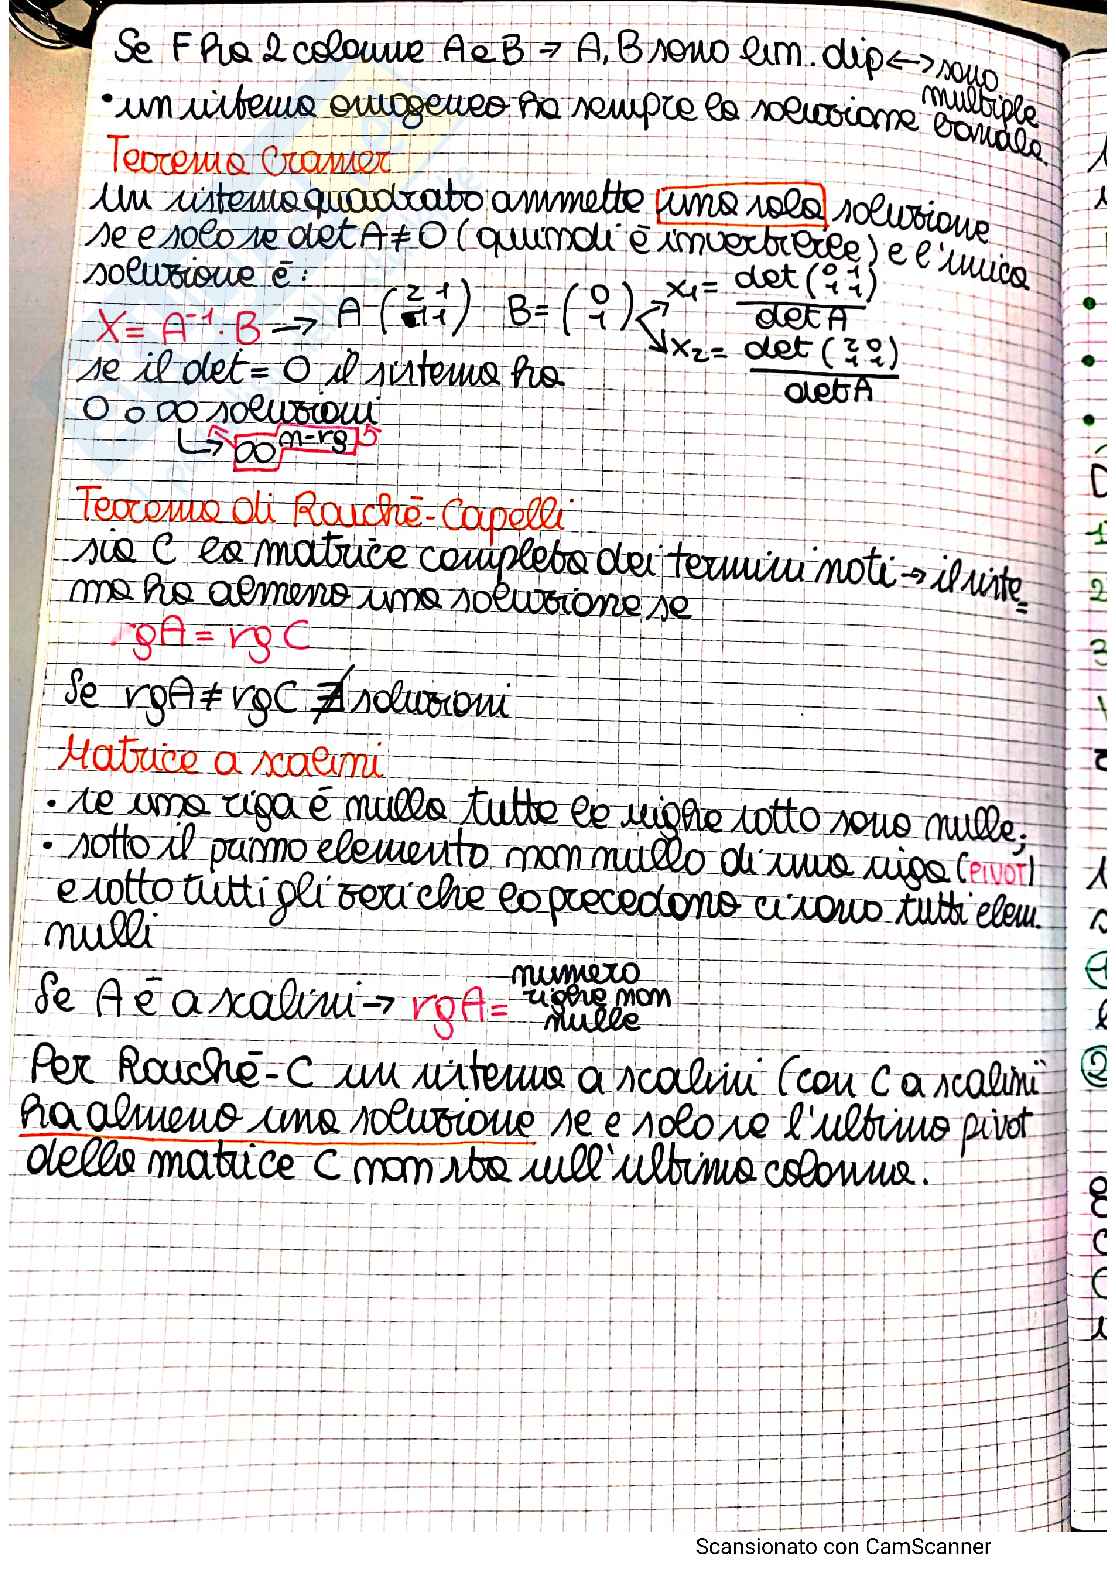 Se F ha 2 colonne A e B → A, B sono lin. dip ↔ sono multiple
• un sistema omogeneo ha sempre la soluzione banale.
Teorema Cramer
Un sistema quadrato ammette una sola soluzione
se e solo se det A ≠ 0 (quindi è invertibile) e l'unica
soluzione è:
X = A⁻¹ · B → A (2 1 / 1 1) B = (0 / 1) x₁ = det (0 1 / 1 1) / det A
x₂ = det (2 0 / 1 1) / det A
se il det = 0 il sistema ha
0 o ∞ soluzioni
↳ ∞ n-rg
Teorema di Rouché-Capelli
sia C la matrice completa dei termini noti → il siste=
ma ha almeno una soluzione se
rgA = rg C
Se rgA ≠ rgC ∄ soluzioni
Matrice a scalini
• se una riga è nulla tutte le righe sotto sono nulle;
• sotto il primo elemento non nullo di una riga (PIVOT)
e sotto tutti gli zeri che lo precedono ci sono tutti elem.
nulli
Se A è a scalini → rgA = numero righe non nulle
Per Rouché-C un sistema a scalini (con C a scalini
ha almeno una soluzione se e solo se l'ultimo pivot
della matrice C non sta sull'ultima colonna.
Scansionato con CamScanner